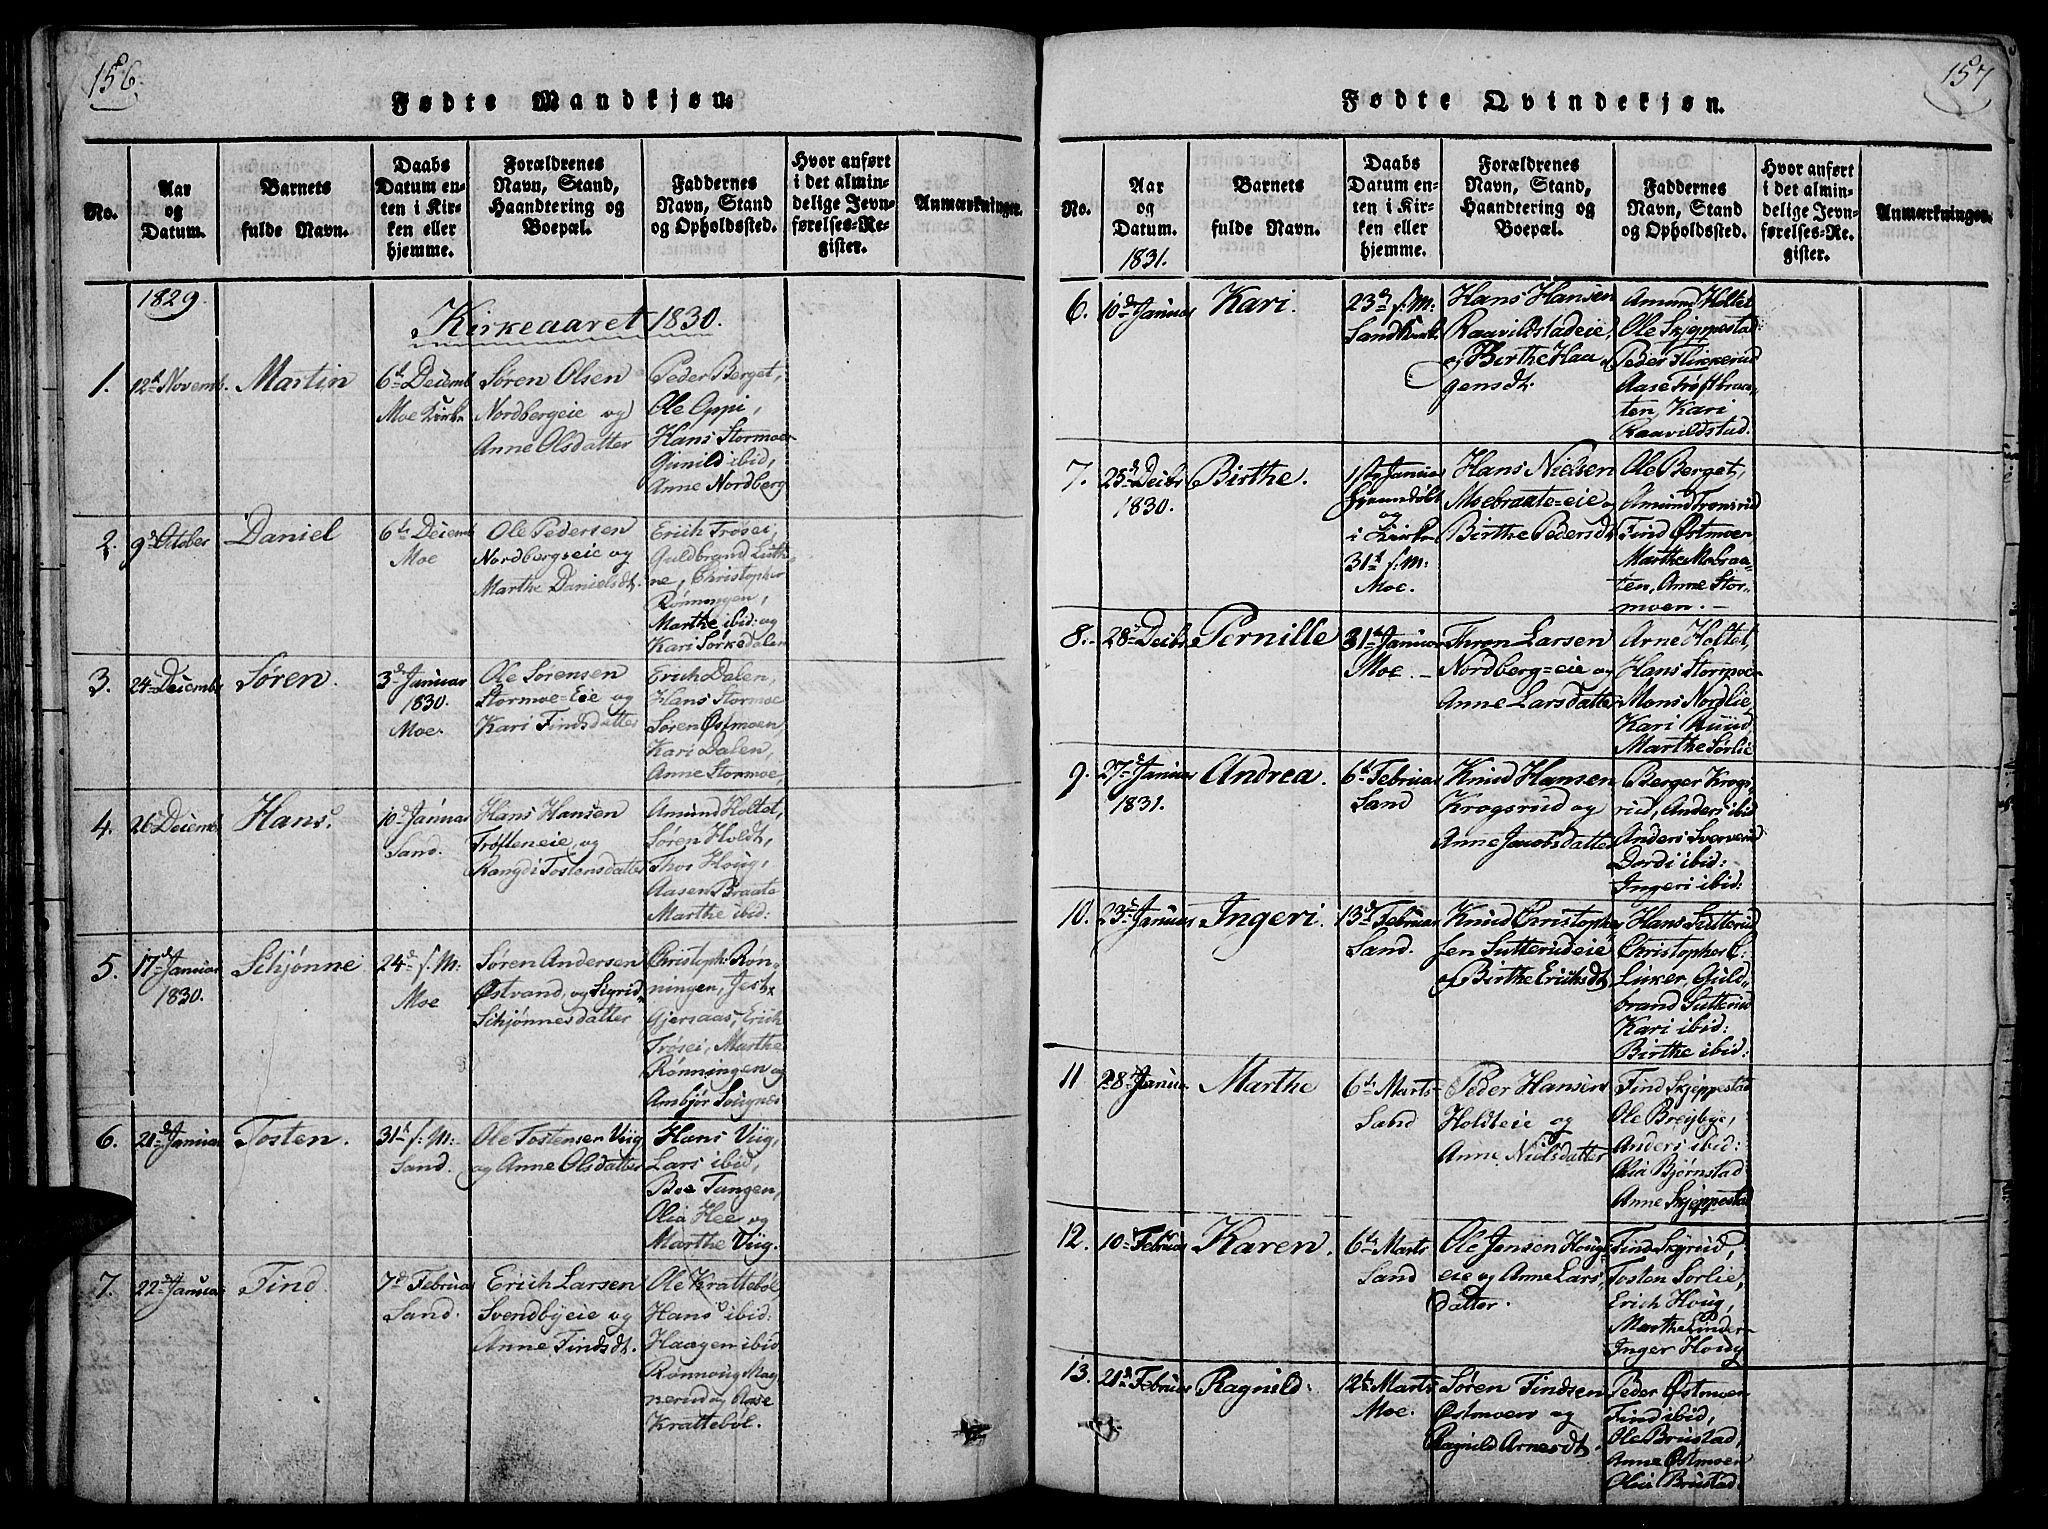 156.
Fødte Mandkjøn.
No.
Aar
og
Datum.
Barnets
fulde Navn.
Daabs
Datum en-
ten i Kir-
ken eller
hjemme.
Forældrenes
Navn, Stand,
Haandtering og
Boepæl.
Faddernes
Navn, Stand
og Opholdssted.
Hvor anført
i det almin-
delige Jevn-
førelses-Re-
gister.
Anmærkninger.
1829
Kirkeaaret 1830.
1.
12t Novemb.
Martin
6t Decemb
Moe Kirke
Søren Olsen
Nordbergeie og
Anne Olsdatter
Peder Berget,
Ole Oppi,
Hans Stormoe
Gunild ibid,
Anne Nordberg
2.
9d October
Daniel
6te Decemb
Moe
Ole Pedersen
Nordbergseie og
Marthe Danielsdt.
Erich Trøsei,
Guldbrand Luth-
ne, Christopher
Rønningen,
Marthe ibid: og
Kari Sørkedalen
3.
24 Decemb
Søren.
3d Januar
1830.
Moe.
Ole Sørensen
Stormoe=Eie og
Kari Findsdatter
Erich Dalen,
Hans Stormoe
Søren Østmoen,
Kari Dalen,
Anne Stormoe,
4.
26 Decemb
Hans.
10d Januar
Sand.
Hans Hansen
Trøfteneie, og
Rangdi Tostensdatter
Amund Holtet,
Søren Holdt,
Thor Houg,
Aasen Braate
Marthe ibid:
5.
17d Januar
1830.
Schjønne
24d s. M:
Moe
Søren Andersen
Østvand, og Sigrid
Schjønnesdatter
Christoph: Røn-
ningen,
Gjersaas, Erich
Trøsei, Marthe
Rønningen og
Ambjør
6.
21d Januar
Tosten.
31t s: M:
Sand.
Ole Tostensen Viig
og Anne Olsdatter
Hans Viig,
Lars ibid,
Boe Tangen,
Olia Hee og
Marthe Viig.
7.
22d Januar
Find
7d Februar
Sand.
Erich Larsen
Svendbyeie og
Anne Findsdt.
Ole Krattebøl
Hans ibid:
Haagen ibid
Rønnoug Mag
nerud og Anse
Krattebøl.
157
Fødte Qvindekjøn.
No.
Aar
og
Datum.
1831.
Barnets
fulde Navn.
Daabs
Datum en-
ten i Kir-
ken eller
hjemme.
Forældrenes
Navn, Stand,
Haandtering og
Boepæl.
Faddernes
Navn, Stand
og Opholdssted.
Hvor anført
i det almin-
delige Jevn-
førelses-Re-
gister.
Anmærkninger.
6.
10d Januar
Kari.
23d s. M:
Sand Kirke
Hans Hansen
Raavildstadeie,
og Birthe Haa
gensdt.
Amund Holtet
Ole Skjeppestad
Peder Flikkerud
Aase Trøftbraa-
ten, Kari
Raavildstad.
7.
25d Decbr
1830.
Birthe.
1ste Januar
og
i Kirke
31t s. M:
Moe.
Hans Nielsen
Moebraate=eie og
Birthe Pedersdt
Ole Berget,
Amund Tronsrud
Find Østmoen
Marthe Mobraa-
ten, Anne Stor-
moen. -
8.-
28d Decbr
Pernille
31t Januar
Moe. -
Thron Larsen
Nordberg=eie og
Anne Larsdatter
Arne Holtet,
Hans Stormoe
Mons Nordlie,
Kari Ruud,
Marthe Sørlie
9.
27d Januar
1831.
Andrea.
6t Februar
Sand
Knud Hansen
Krogsrud og
Anne Jacobsdatter
Berger Krogs,
rud, Anders ibid
Anders Sververud
Dordi ibid:
Ingeri ibid:
10.
23d Januar
Ingeri.
13d Februar
Sand.
Knud Christophe
sen Sutterudeie
og Birthe Erichsdt.
Hans Sutterud
Christopher E:
Luker, Guld-
brand Sutterud
Kari ibid:
Birthe ibid:
11
28 Januar
Marthe
6te Marts
Sand
Peder Hansen
Holdteie og
Anne Nielsdatter
Find Skjeppestad
Ole Breybye,
Anders ibid:
Olia Bjørnstad
Anne Skjeppestad
12.
10d Februar
Karen.
6te Marts
Sand
Ole Jensen Houg-
eie og Anne Lars,
datter.
Find Skyrud,
Tosten Sørlie,
Erich Houg,
Marthe Linder-
Inger Houg
13.
21d Februar
Ragnild.
12te Marts
Moe.
Søren Findsen
Østmoen og
Ragnild Arnesdt.
Peder Østmoen
Find ibid,
Ole Brustad,
Anne Østmoen
Olia Brustad.